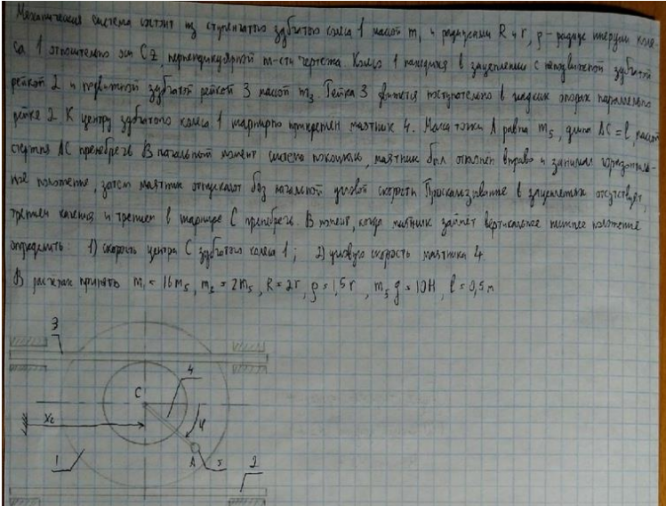 Механическая система состоит из ступенчатого зубчатого колеса 1 массой m₁ и радиусами R и r, ρ - радиус инерции коле-
са 1 относительно оси Cz, перпендикулярной пл-сти чертежа. Колесо 1 находится в зацеплении с неподвижной зубчатой
рейкой 2 и подвижной зубчатой рейкой 3 массой m₃. Рейка 3 движется поступательно в гладких опорах параллельно
рейке 2. К центру зубчатого колеса 1 шарнирно прикреплен маятник 4. Масса точки A равна m₅, длина AC = l, массой
стержня AC пренебречь. В начальный момент система покоилась, маятник был отклонен вправо и занимал горизонталь-
ное положение, затем маятник отпускают без начальной угловой скорости. Проскальзывание в зацеплениях отсутствует,
трением качения и трением в шарнире C пренебречь. В момент, когда маятник займет вертикальное нижнее положение
определить: 1) скорость центра C зубчатого колеса 1; 2) угловую скорость маятника 4
В расчетах принять m₁ = 16m₅, = 2m₅, R = 2r, ρ = 1,5r, m₅g = 10H, l = 0,5 м
3
C
4
Xc
φ
1
A
5
2